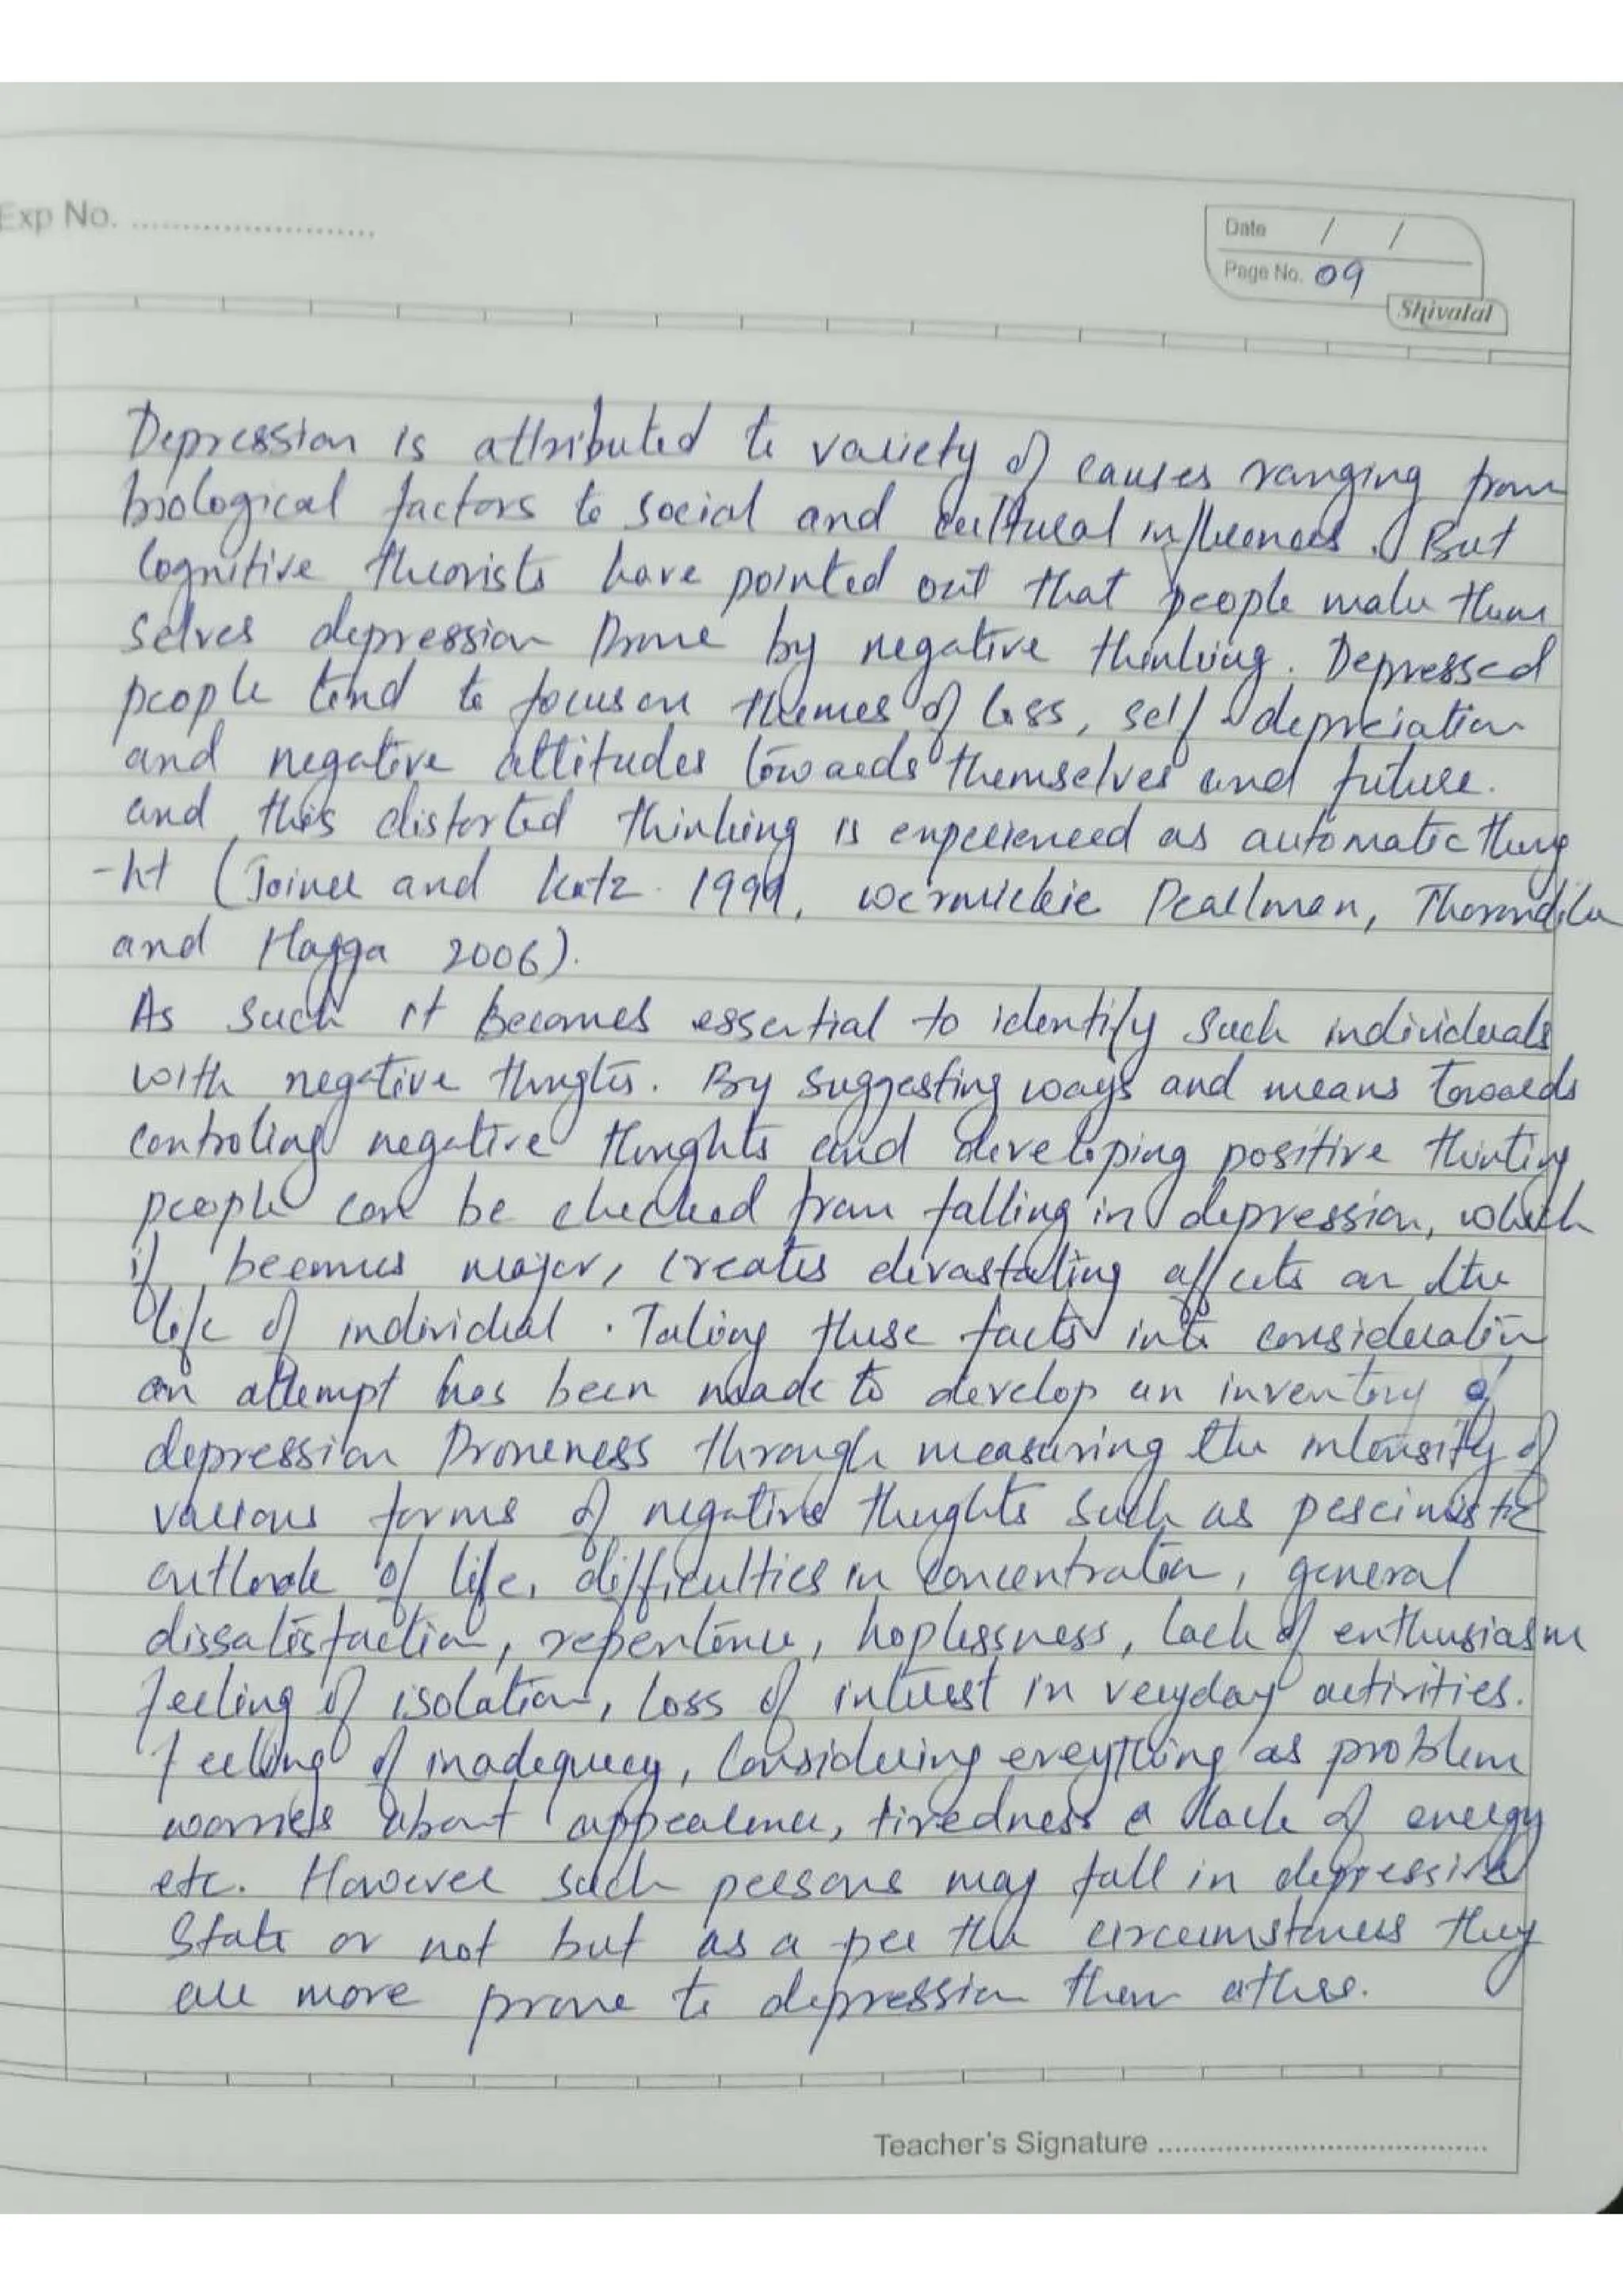 Exp No. ........................
Date / /
Page No. 09
Shivalal
Depression is attributed to variety of causes ranging from
biological factors to social and cultural influences. But
Cognitive theorists have pointed out that people make them
selves depression Prone by negative thinking. Depressed
people tend to focus on themes of loss, self-depreciation
and negative attitudes towards themselves and future.
and this distorted thinking is experienced as automatic thoug
-ht (Joiner and Katz 1999, Pearlman, Thorndike
and Hagga 2006).
As such it becomes essential to identify such individuals
with negative thoughts. By suggesting ways and means towards
controling negative thoughts and developing positive thinking
people can be checked from falling in depression, which
if becomes major, creates devastating affects on the
life of individual. Taking these facts into consideration
an attempt has been made to develop an inventory of
depression Proneness through measuring the intensity of
various forms of negative thoughts such as pescimistic
outlook of life, difficulties in concentration, general
dissatisfaction, repentence, hoplessness, lack of enthusiasm
feeling of isolation, loss of interest in veryday activities.
feeling of inadequecy, Considering everything as problem
worries about appearence, tiredness a lack of energy
etc. However such persons may fall in depressive
State or not but as a per the circumstances they
are more prone to depression then others.
Teacher's Signature ........................................